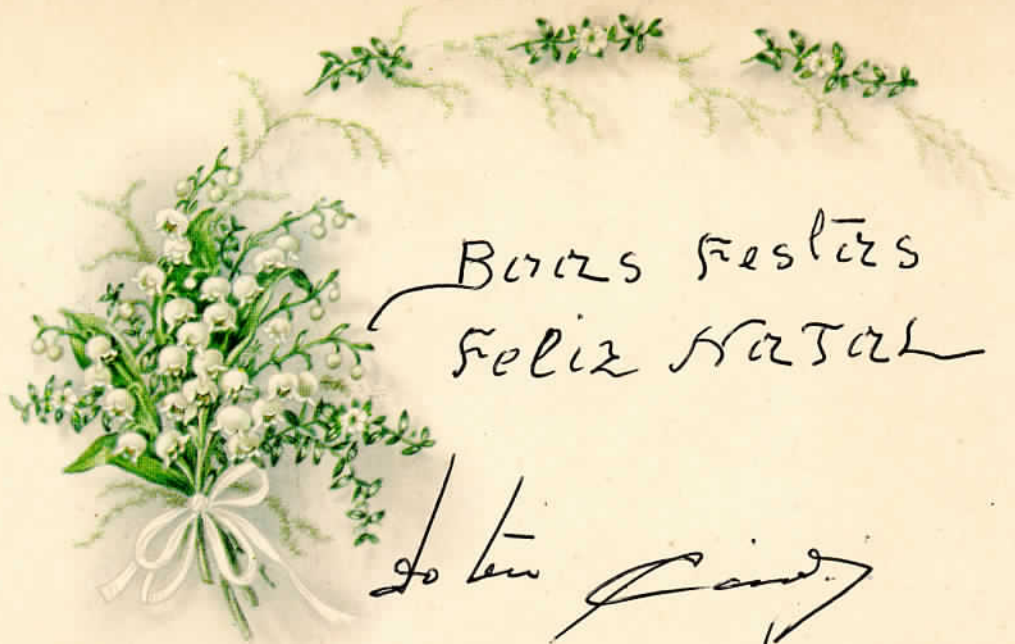 Boas Festas
Feliz Natal
do teu